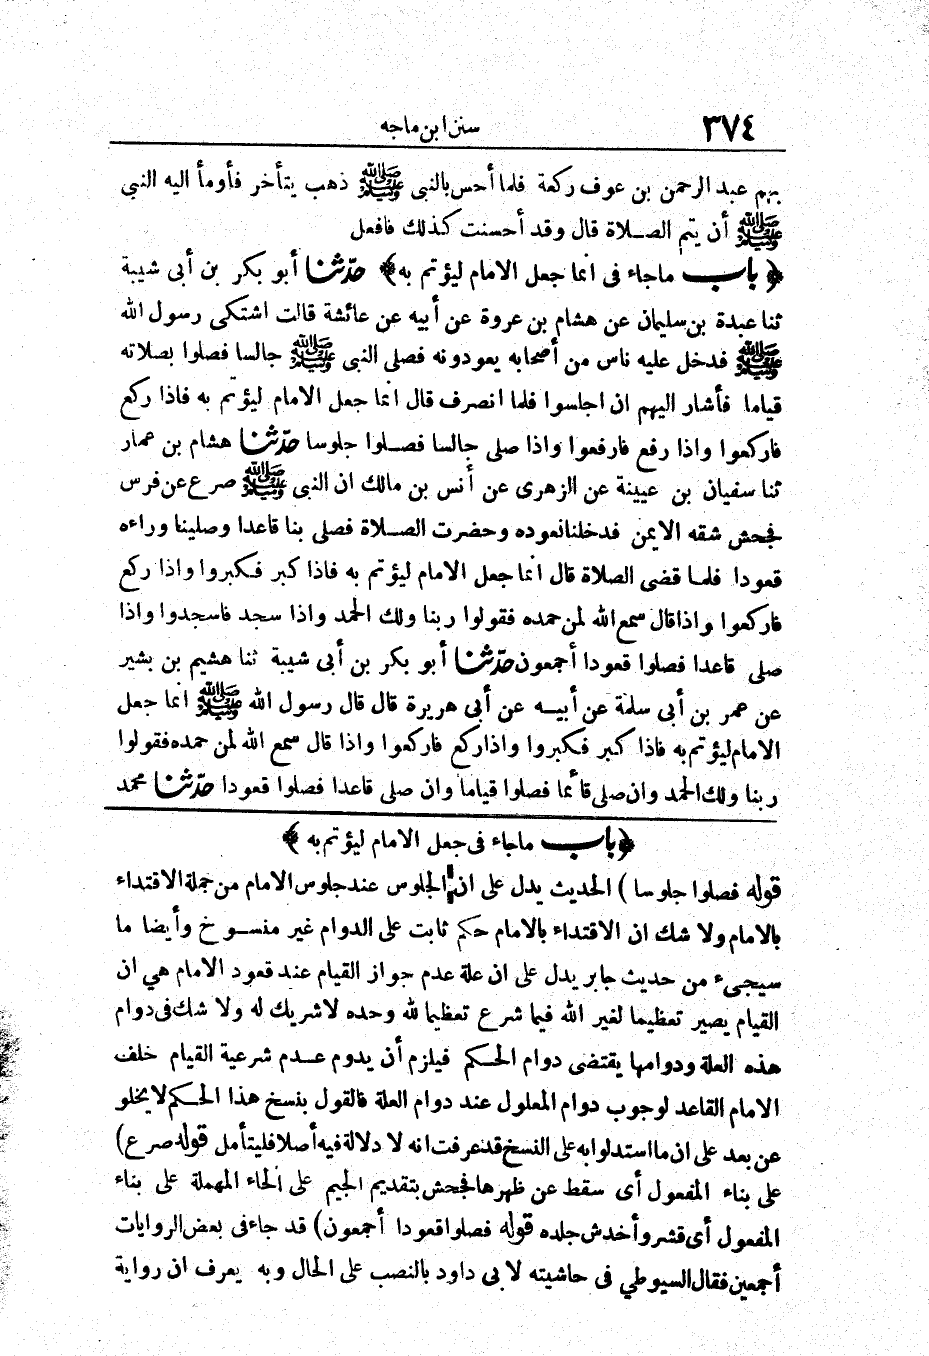 ٣٧٤
سنن ابن ماجه
بهم عبد الرحمن بن عوف ركعة فلما أحس بالنبى ﷺ ذهب يتأخر فأومأ اليه النبي
ﷺ أن يتم الصلاة قال وقد أحسنت كذلك فافعل
﴿ باب ماجاء فى انما جعل الامام ليؤتم به ﴾ حدّثنا أبو بكر بن أبى شيبة
ثنا عبدة بن سليمان عن هشام بن عروة عن أبيه عن عائشة قالت اشتكى رسول الله
ﷺ فدخل عليه ناس من أصحابه يعودونه فصلى النبى ﷺ جالسا فصلوا بصلاته
قياما فأشار اليهم ان اجلسوا فلما انصرف قال انما جعل الامام ليؤتم به فاذا ركع
فاركعوا واذا رفع فارفعوا واذا صلى جالسا فصلوا جلوسا حدّثنا هشام بن عمار
ثنا سفيان بن عيينة عن الزهرى عن أنس بن مالك ان النبى ﷺ صرع عن فرس
فجحش شقه الايمن فدخلنا نعوده وحضرت الصلاة فصلى بنا قاعدا وصلينا وراءه
قعودا فلما قضى الصلاة قال انما جعل الامام ليؤتم به فاذا كبر فكبروا واذا ركع
فاركعوا واذا قال سمع الله لمن حمده فقولوا ربنا ولك الحمد واذا سجد فاسجدوا واذا
صلى قاعدا فصلوا قعودا أجمعون حدّثنا أبو بكر بن أبى شيبة ثنا هشيم بن بشير
عن عمر بن أبى سلمة عن أبيه عن أبى هريرة قال قال رسول الله ﷺ انما جعل
الامام ليؤتم به فاذا كبر فكبروا واذا ركع فاركعوا واذا قال سمع الله لمن حمده فقولوا
ربنا ولك الحمد وان صلى قائما فصلوا قياما وان صلى قاعدا فصلوا قعودا حدّثنا محمد
﴿ باب ماجاء فى جعل الامام ليؤتم به ﴾
قوله فصلوا جلوسا ) الحديث يدل على ان الجلوس عند جلوس الامام من جملة الاقتداء
بالامام ولا شك ان الاقتداء بالامام حكم ثابت على الدوام غير منسوخ وأيضا ما
سيجىء من حديث جابر يدل على ان علة عدم جواز القيام عند قعود الامام هي ان
القيام يصير تعظيما لغير الله فيما شرع تعظيما لله وحده لاشريك له ولا شك فى دوام
هذه العلة ودوامها يقتضى دوام الحكم فيلزم أن يدوم عدم شرعية القيام خلف
الامام القاعد لوجوب دوام المعلول عند دوام العلة فالقول بنسخ هذا الحكم لا يخلو
عن بعد على ان ما استدلوا به على النسخ قد عرفت انه لا دلالة فيه أصلا فليتأمل قوله صرع)
على بناء المفعول أى سقط عن ظهرها فجحش بتقديم الجيم على الحاء المهملة على بناء
المفعول أى قشر وأخدش جلده قوله فصلوا قعودا أجمعون) قد جاء فى بعض الروايات
أجمعين فقال السيوطي فى حاشيته لابي داود بالنصب على الحال وبه يعرف ان رواية